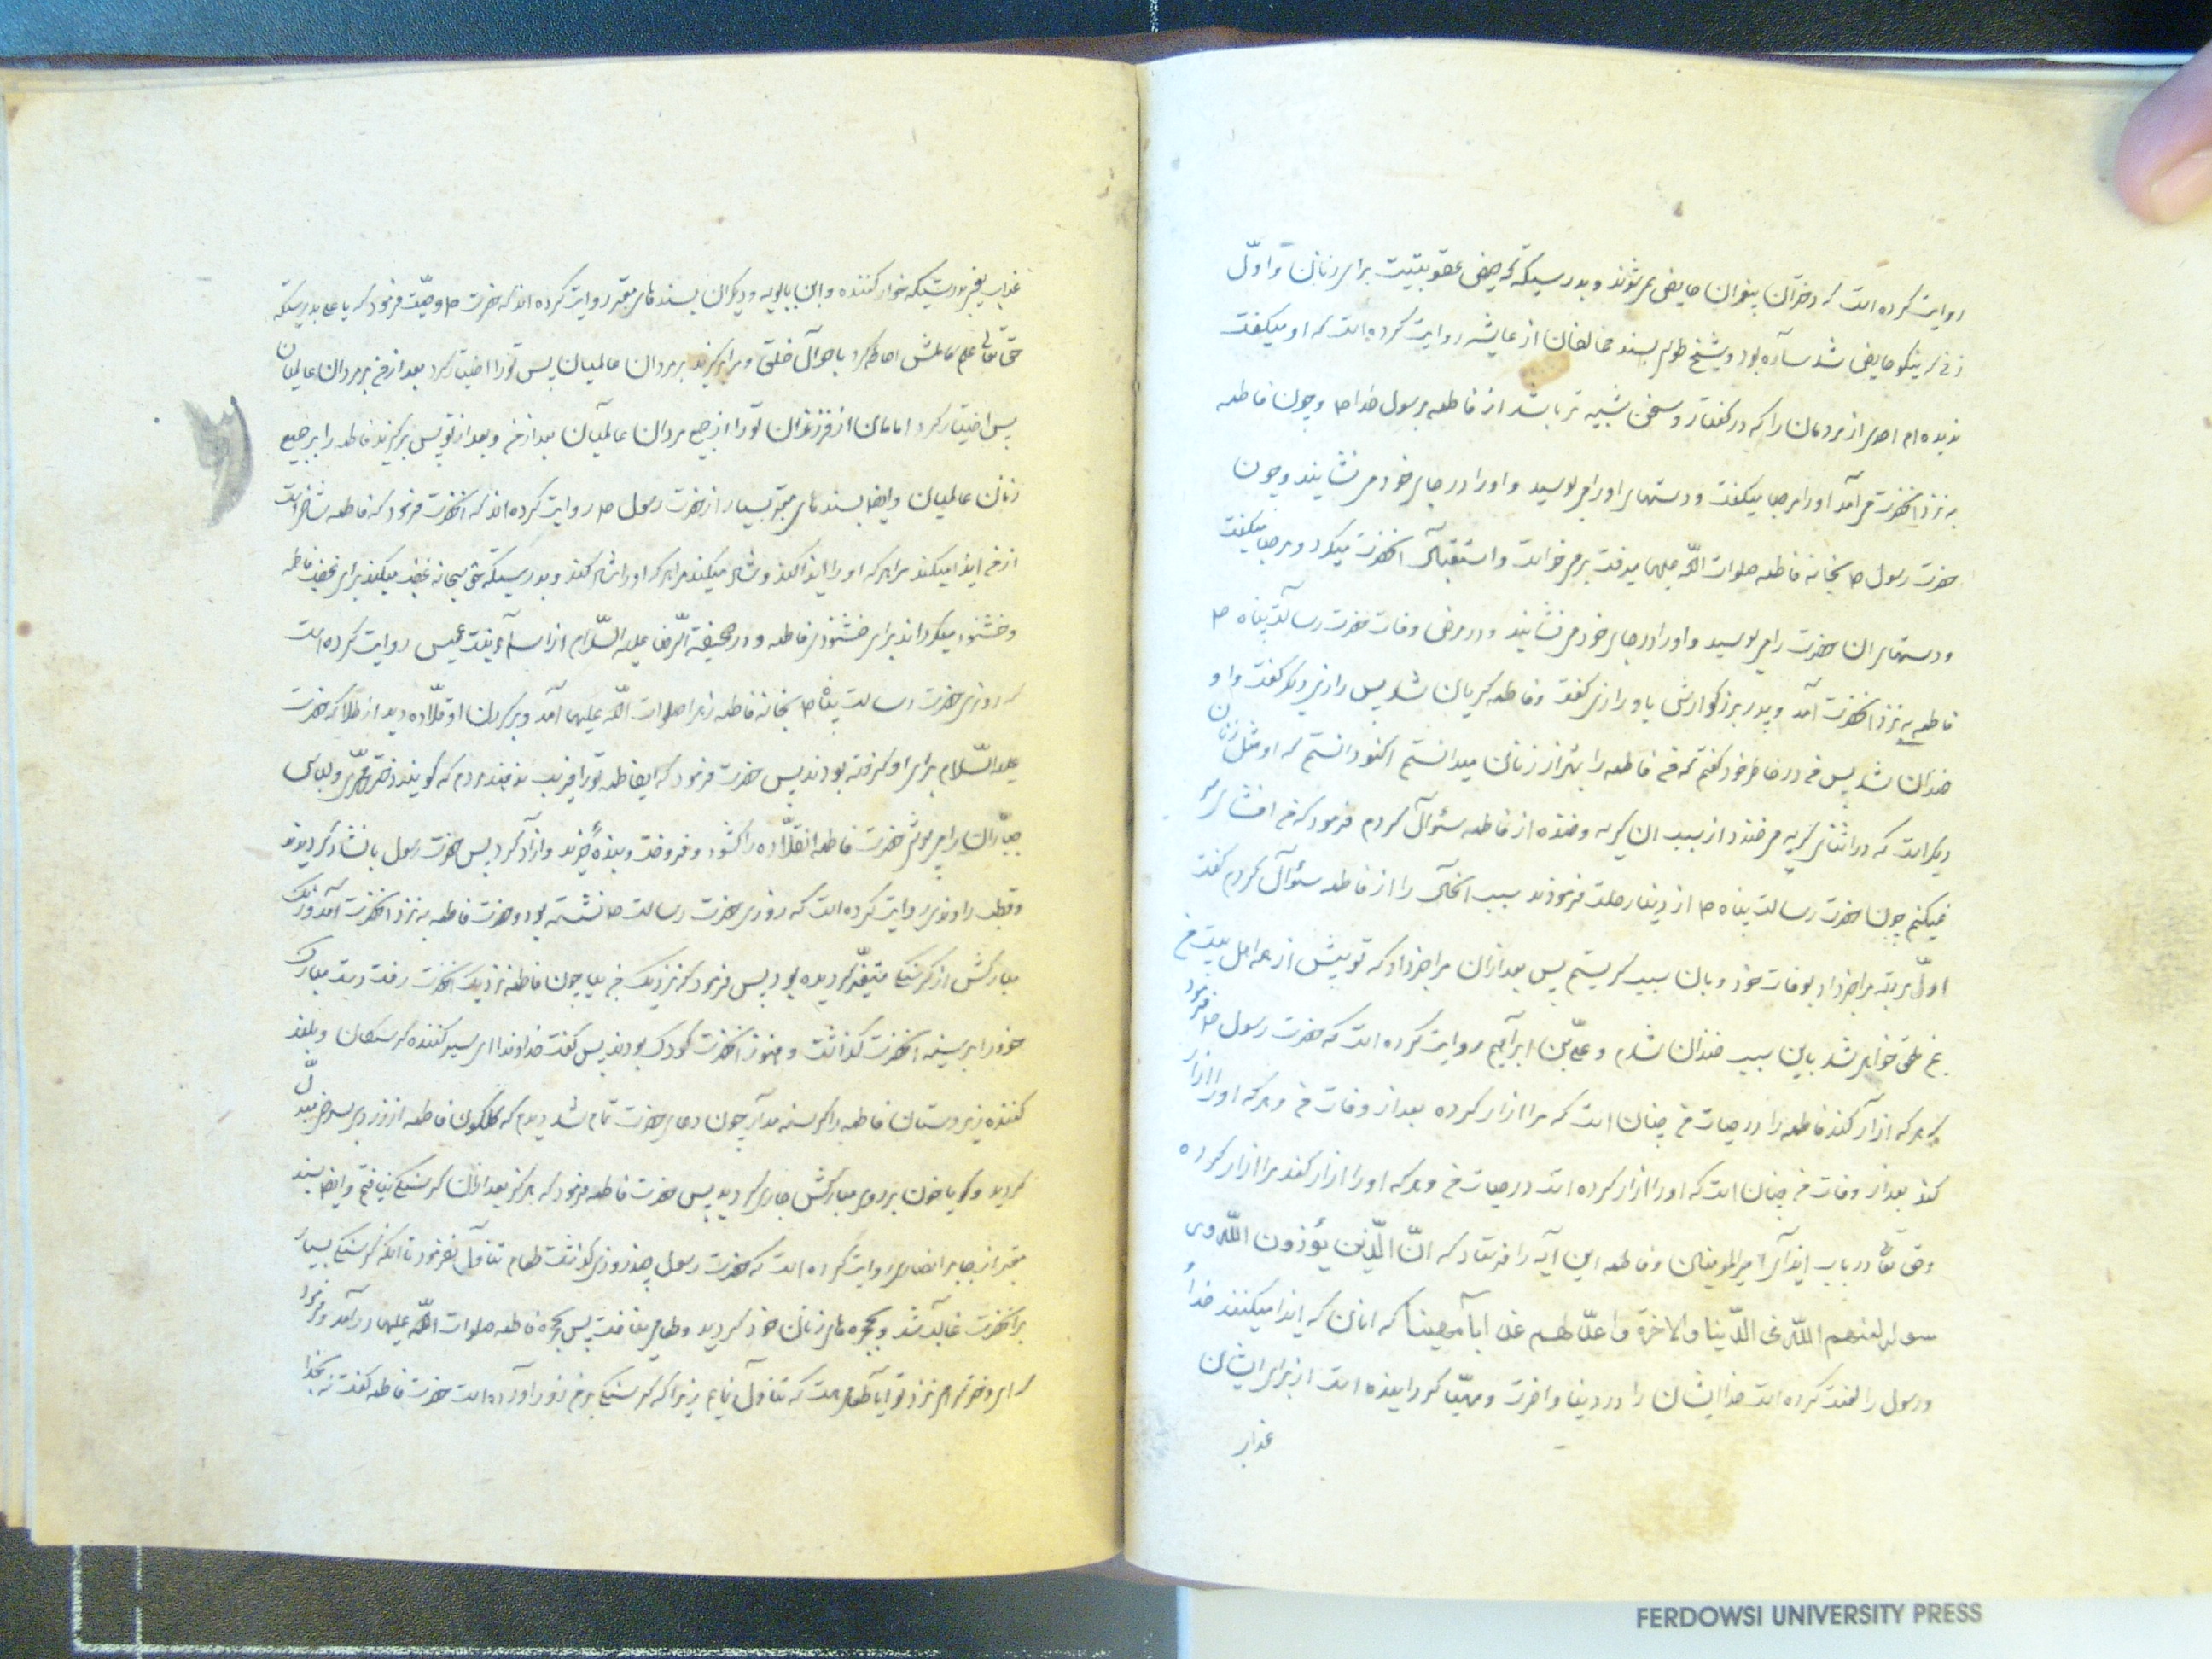 روایت کرده است که دختران پیغمبران حایض نمیشوند و بدرسیکه که حیض عقوبتیست برای زنان و اوّل
زنی که حایض شد ساره بود و شیخ طوسی بسند مخالفان از عایشه روایت کرده است که او میگفت
ندیده ام احدی از مردمان را که در گفتار و سخن شبیه تر باشد از فاطمه برسول خدا ص و چون فاطمه
به نزد انحضرت می آمد او را مرحبا میگفت و دستهای او را میبوسید و او را در جای خود می نشایند و چون
حضرت رسول ص بخانه فاطمه صلوات اللّه علیها میرفت برمیخواست و استقبال انحضرت میکرد و مرحبا میگفت
و دستهای ان حضرت را میبوسید و او را در جای خود می نشانید و در مرض وفات حضرت رسالت پناه ص
فاطمه به نزد انحضرت آمد و پدر بزرگوارش باو رازی گفت و فاطمه گریان شد پس راز دیگر گفت و او
خندان شد پس من در خاطر خود گفتم که من فاطمه را بهتر از زنان میدانستم اکنون دانستم که او مثل زنان
دیگر است که در اثنای گریه میخندد از سبب ان گریه و خنده از فاطمه سئوال کردم فرمود که من افشای سر
نمیکنم چون حضرت رسالت پناه ص از دنیا رحلت فرمودند سبب انحال را از فاطمه سئوال کردم گفت
اوّل مرتبه مرا خبر داد بوفات خود و بان سبب گریستم پس بعد ازان مرا خبر داد که تو پیش از همه اهل بیت من
بمن ملحق خواهی شد باین سبب خندان شدم و علیّ بن ابراهیم روایت کرده است که حضرت رسول ص فرمود
که هر که ازار کند فاطمه را در حیات من چنان است که مرا ازار کرده بعد از وفات من و هر که او را ازار
کند بعد از وفات من چنان است که او را ازار کرده است در حیات من و هر که او را ازار کند مرا ازار کرده
و حق تعالی در باب ایذای امیر المومنین و فاطمه این آیه را فرستاد که انّ الّذین یؤذون اللّه و ر
سوله لعنهم اللّه فی الدّنیا والاخرة واعدّ لهم عذابا مهینا که انان که ایذا میکنند خدا
و رسول را لعنت کرده است خدا ایشان را در دنیا و اخرت و مهیّا گردانیده است از برای ایشان
عذاب
حق تعالی علم کاملش احاطه کرد باحوال خلق و مرا برگزید بر مردان عالمیان پس تو را اختیار کرد بعد از من بر مردان عالمیان
پس اختیار کرد امامان از فرزندان تو را از جمیع مردان عالمیان بعد از من و بعد از تو پس برگزید فاطمه را بر جمیع
زنان عالمیان و ایضا بسند های معتبر بسیار از حضرت رسول ص روایت کرده اند که انحضرت فرمود که فاطمه
از من ایذا میکند مرا هر که او را ایذا کند و شاد میکند مرا هر که او را شاد کند و بدرسیکه حق سبحانه غضب میکند برای غضب فاطمه
و خشنود میگرداند برای خشنودی فاطمه و در صحیفة الرّضا علیه السّلام از اسماء بنت عمیس روایت کرده است
که روزی حضرت رسالت پناه ص بخانه فاطمه زهرا صلوات اللّه علیها آمد و در گردن او قلّاده دید از طلا که حضرت
علیه السّلام برای او گرفته بودند پس حضرت فرمود که ای فاطمه تو را فریب ندهند مردم که گویند دختر محمّدی و لباس
جبّاران را میپوشی حضرت فاطمه ان قلّاده را گشود و فروخت و بنده خرید و ازاد کرد پس حضرت رسول بان شاد گردیدند
و قطب راوندی روایت کرده است که روزی حضرت رسالت ص نشسته بود و حضرت فاطمه به نزد انحضرت آمد و رنگ
مبارکش از گرسنگی متغیّر گردیده بود پس فرمود که نزدیک من بیا چون فاطمه نزدیک انحضرت رفت دست مبارک
خود را بر سینه انحضرت گذاشت و هنوز انحضرت کودک بودند پس گفت خداوندا ای سیر کننده گرسنگان و بلند
کننده زیردستان فاطمه را گرسنه مدار چون دعای حضرت تمام شد دیدم که گلگون فاطمه از زردی بسرخی مبدّل
گردید و گویا خون بر روی مبارکش جاری گردید پس حضرت فاطمه فرمود که هرگز بعد ازان گرسنگی نیافتم و ایضا بسند
معتبر از جابر انصاری روایت کرده است که حضرت رسول چند روزی گذشت طعام تناول نفرمود تا انکه گرسنگی بسیار
بر انحضرت غالب شد و بحجره های زنان خود گردید و طعامی نیافت پس بحجره فاطمه صلوات اللّه علیها درآمد و فرمود
که ای دختر ایا نزد تو طعامی هست که تناول نمایم زیرا که گرسنگی بر من زور اورده است حضرت فاطمه گفت نه بخدا
FERDOWSI UNIVERSITY PRESS